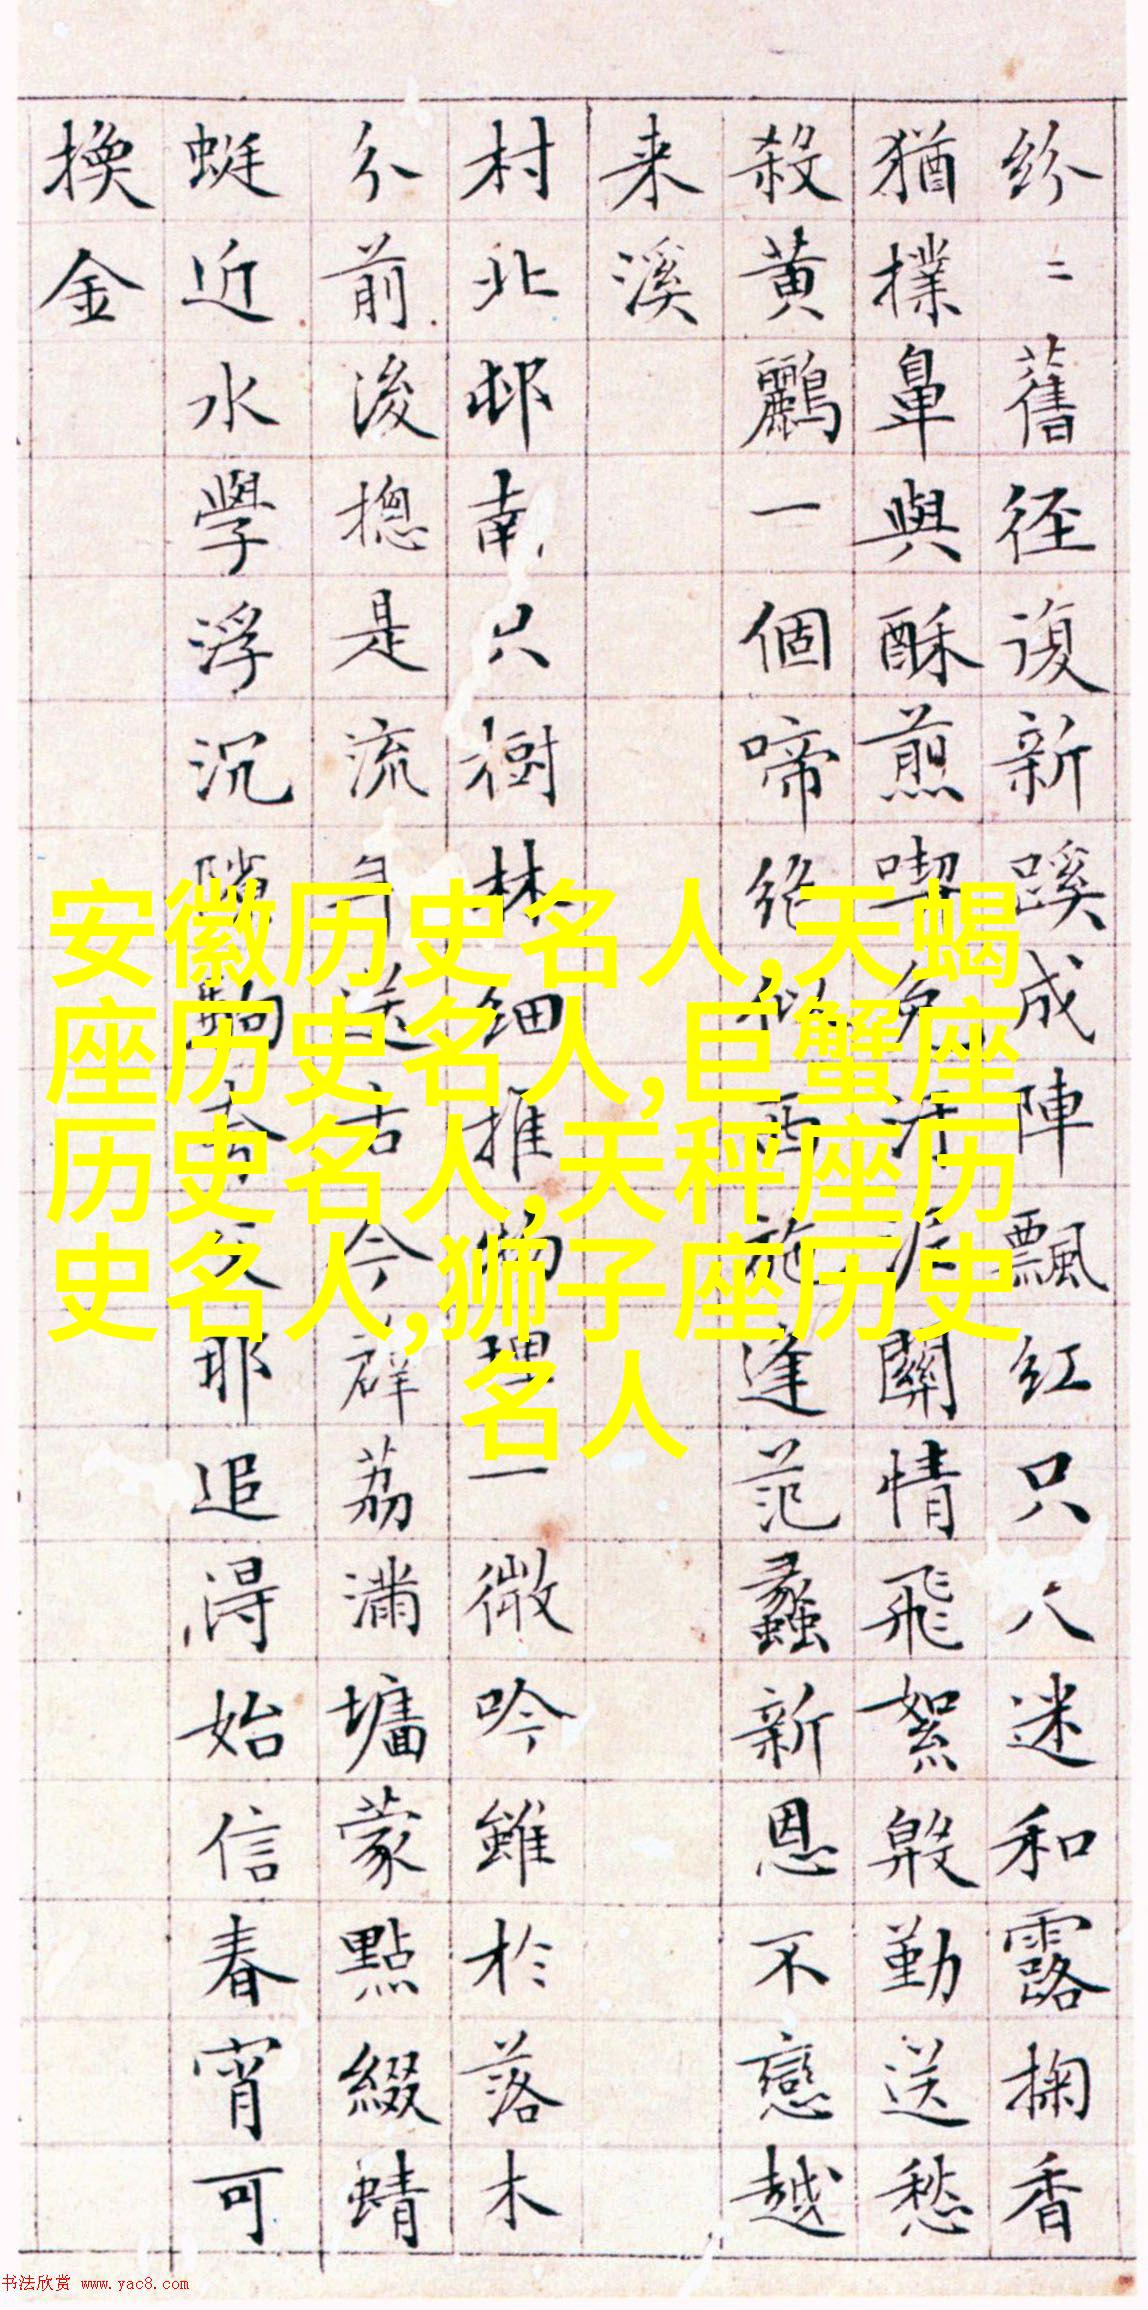 紛〻舊径復新蹊成陣飄紅只
迷和露掬香
猶撲鼻與酥煎喫
關情飛絮
勤送愁
殺黃鸝一個啼絶似西施逢范蠡新恩不戀越
来溪
村北邨南只樹林細推物理一微吟雖於落木
分前後揔是流
送古今薜荔滿墉蒙點綴蜻
蜓近水學浮沉隙駒去矣耶追得始信春宵可
換金
安徽历史名人,天蝎
座历史名人,巨蟹座
历史名人,天秤座历
史名人,狮子座历史
名人
书法欣赏 www.yac8.com